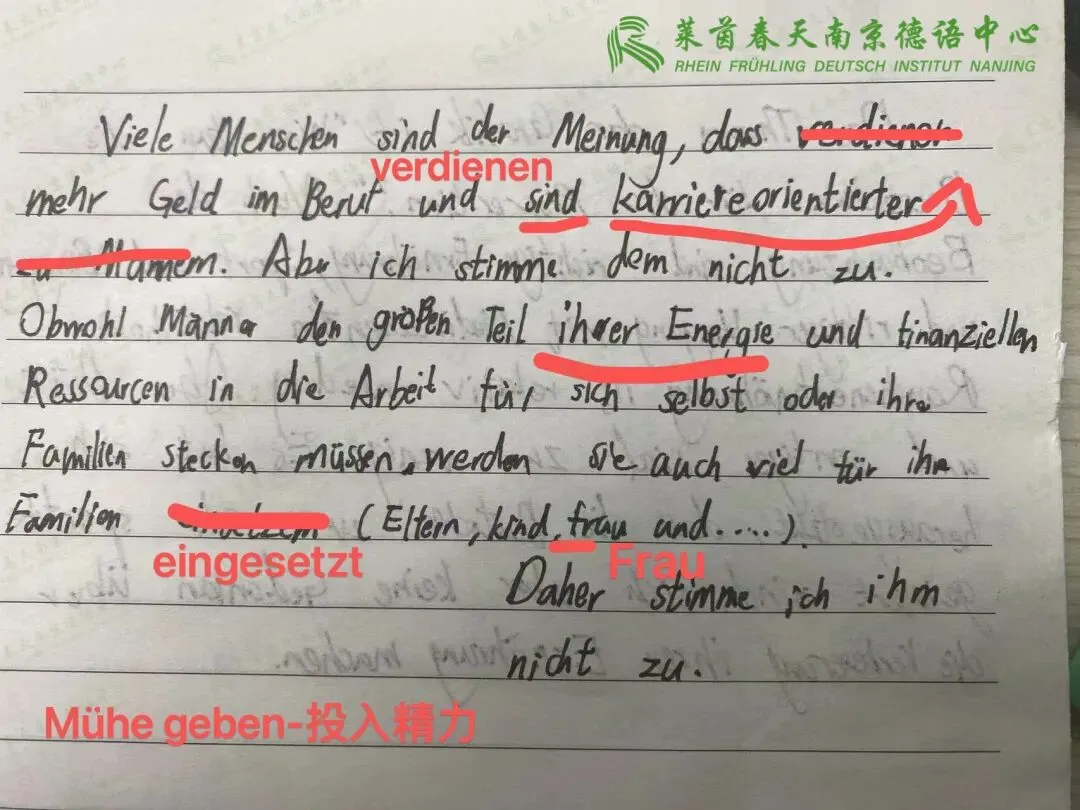 莱茵春天南京德语中心
RHEIN FRÜHLING DEUTSCH INSTITUT NANJING
Viele Menschen sind der Meinung, dass verdienen
verdienen
mehr Geld im Beruf und sind karriereorientierter
zu Mämem. Aber ich stimme dem nicht zu.
Obwohl Männer den großen Teil ihrer Energie und finanziellen
Ressourcen in die Arbeit für sich selbst oder ihre
Familien stecken müssen, werden sie auch viel für ihre
Familien (Eltern, kind, frau und.....).
eingesetzt Frau
Daher stimme ich ihm
nicht zu.
Mühe geben-投入精力